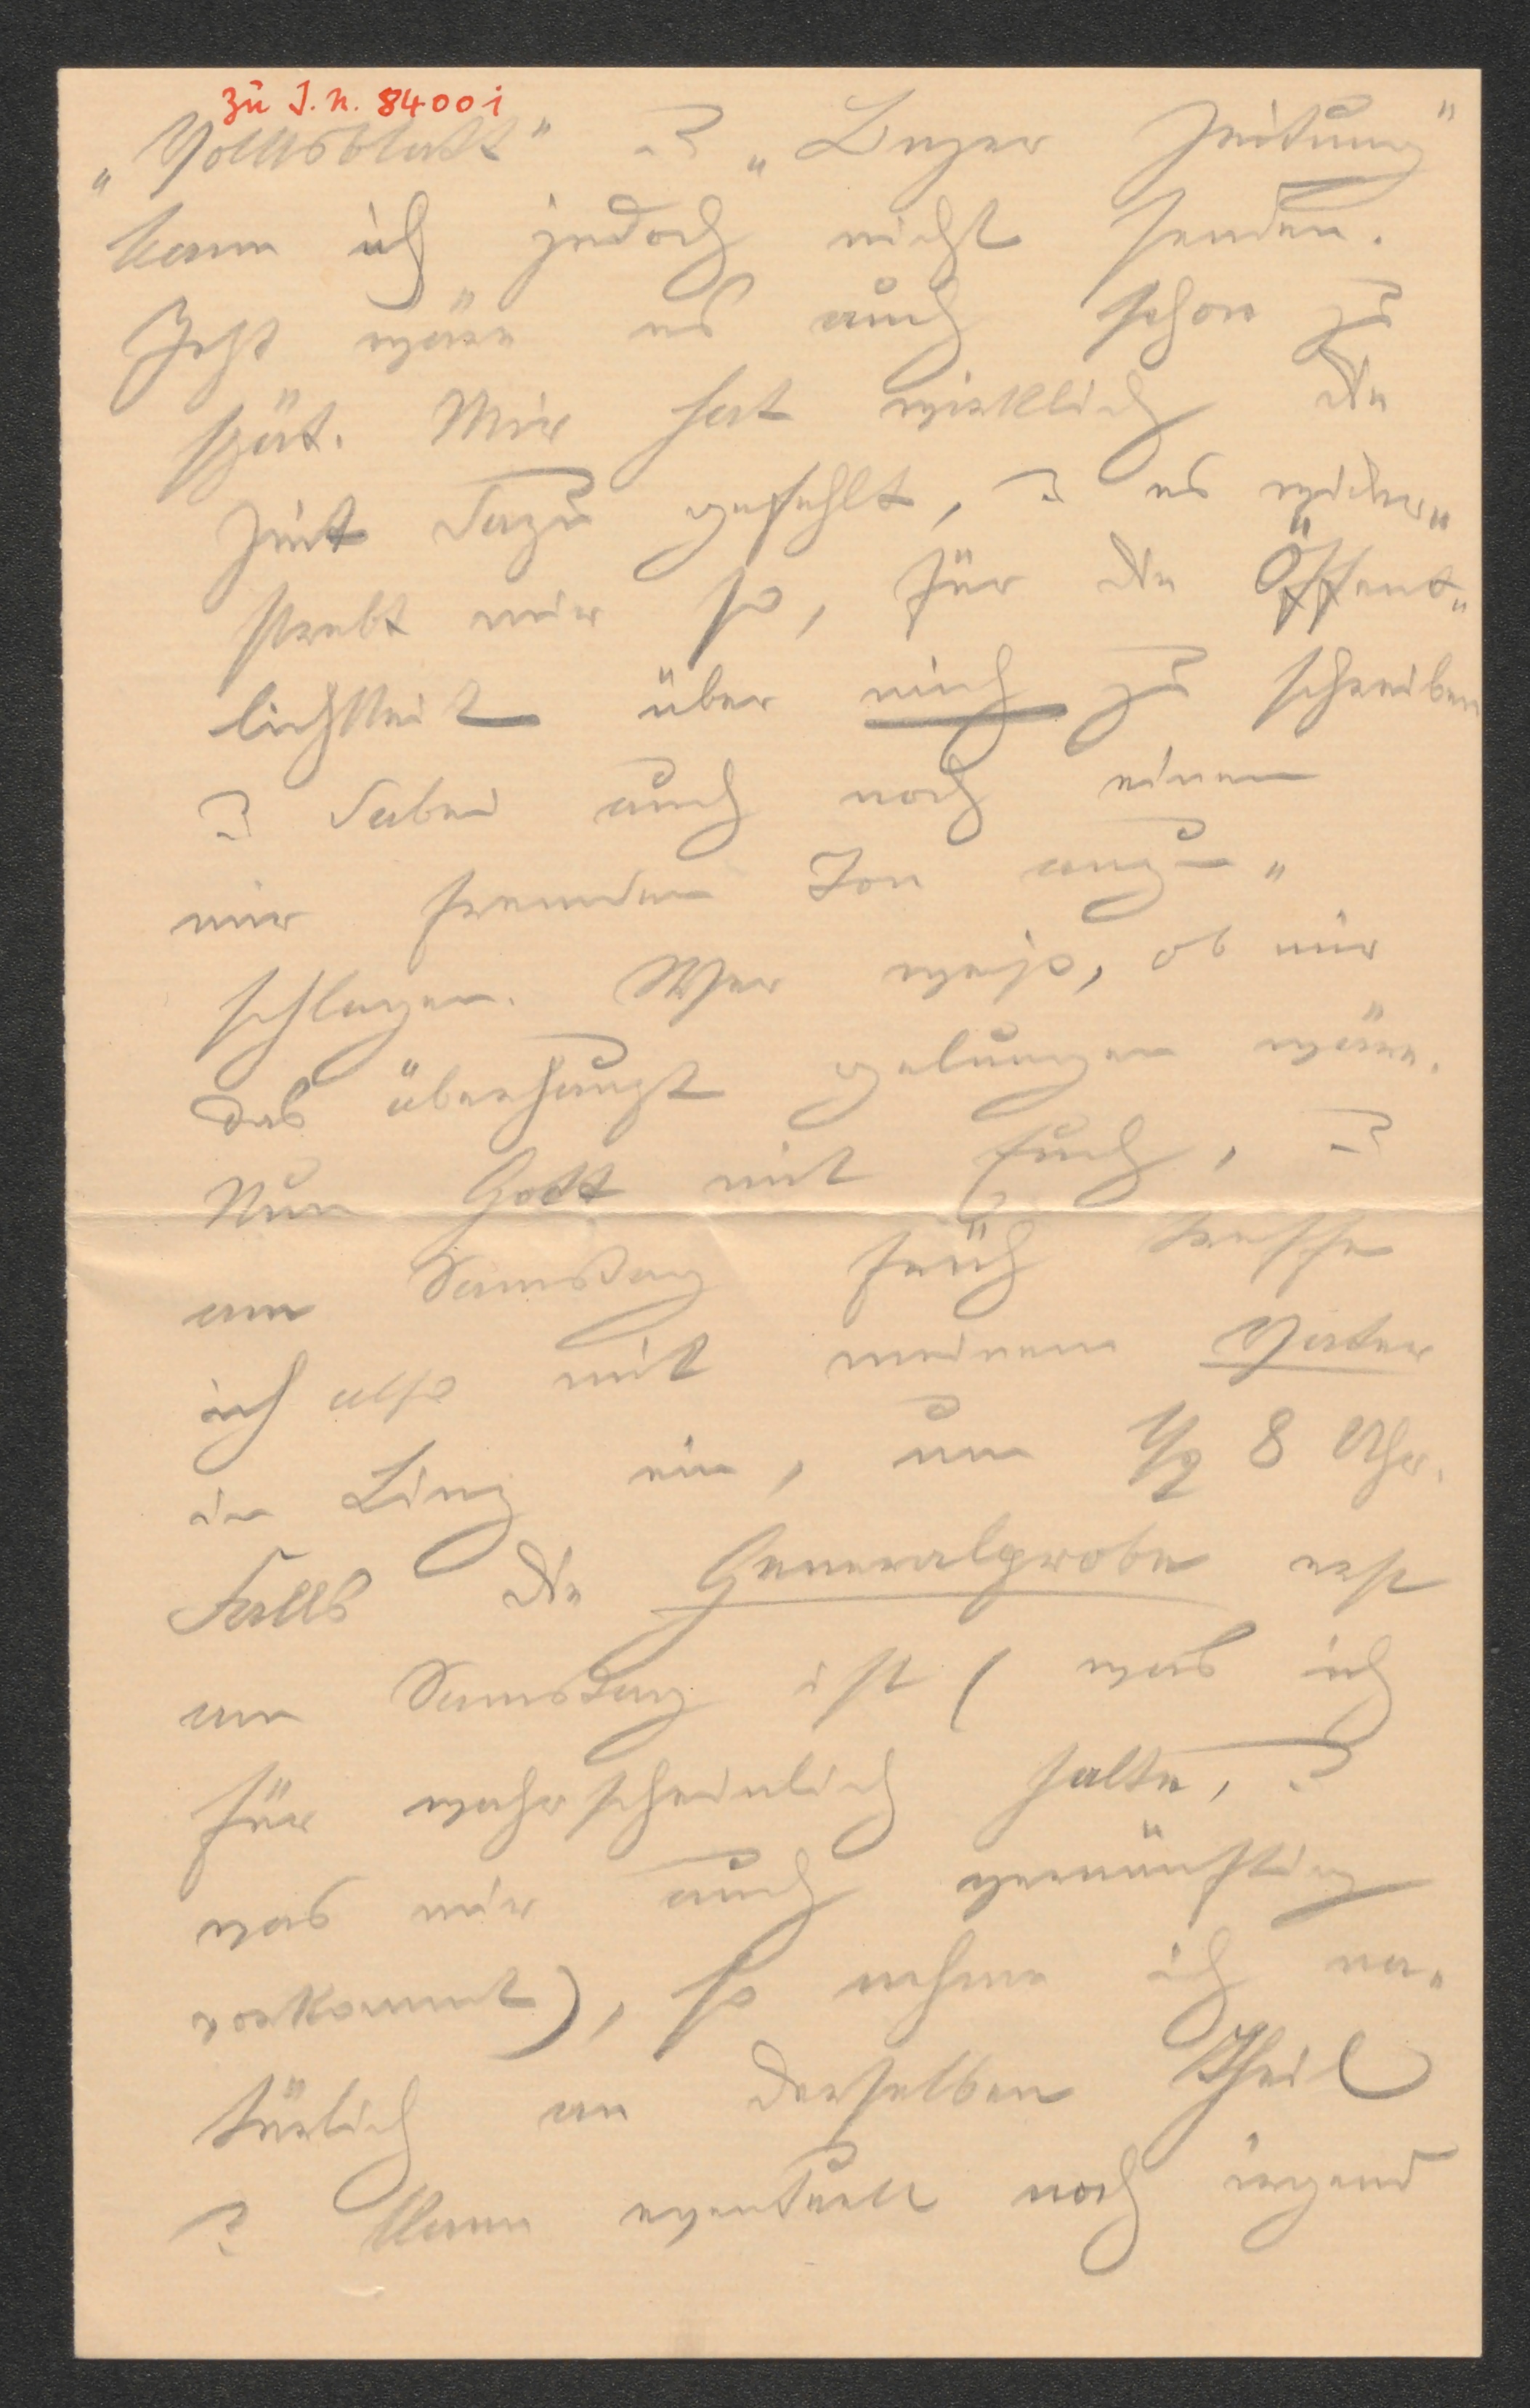 zu J.N. 8400i
„Volksblatt" u „Linzer Zeitung"
kann ich jedoch nicht senden.
Jetzt wäre es auch schon zu
spät. Mir hat wirklich die
Zeit dazu gefehlt, u es wider„
strebt mir so, für die Öffent„
lichkeit über mich zu schreiben
u dabei auch noch einen
mir fremden Ton anzu„
schlagen. Wer weiß, ob mir
das überhaupt gelungen wäre.
Nun Gott mit Euch, u
am Samstag früh treffe
ich also mit meinem Vater
in Linz ein, um 1/2 8 Uhr.
Falls die Generalprobe erst
am Samstag ist (was ich
für wahrscheinlich halte, u
was mir auch vernünftig
vorkommt), so nehme ich na„
türlich an derselben Theil
u kann eventuell noch irgend